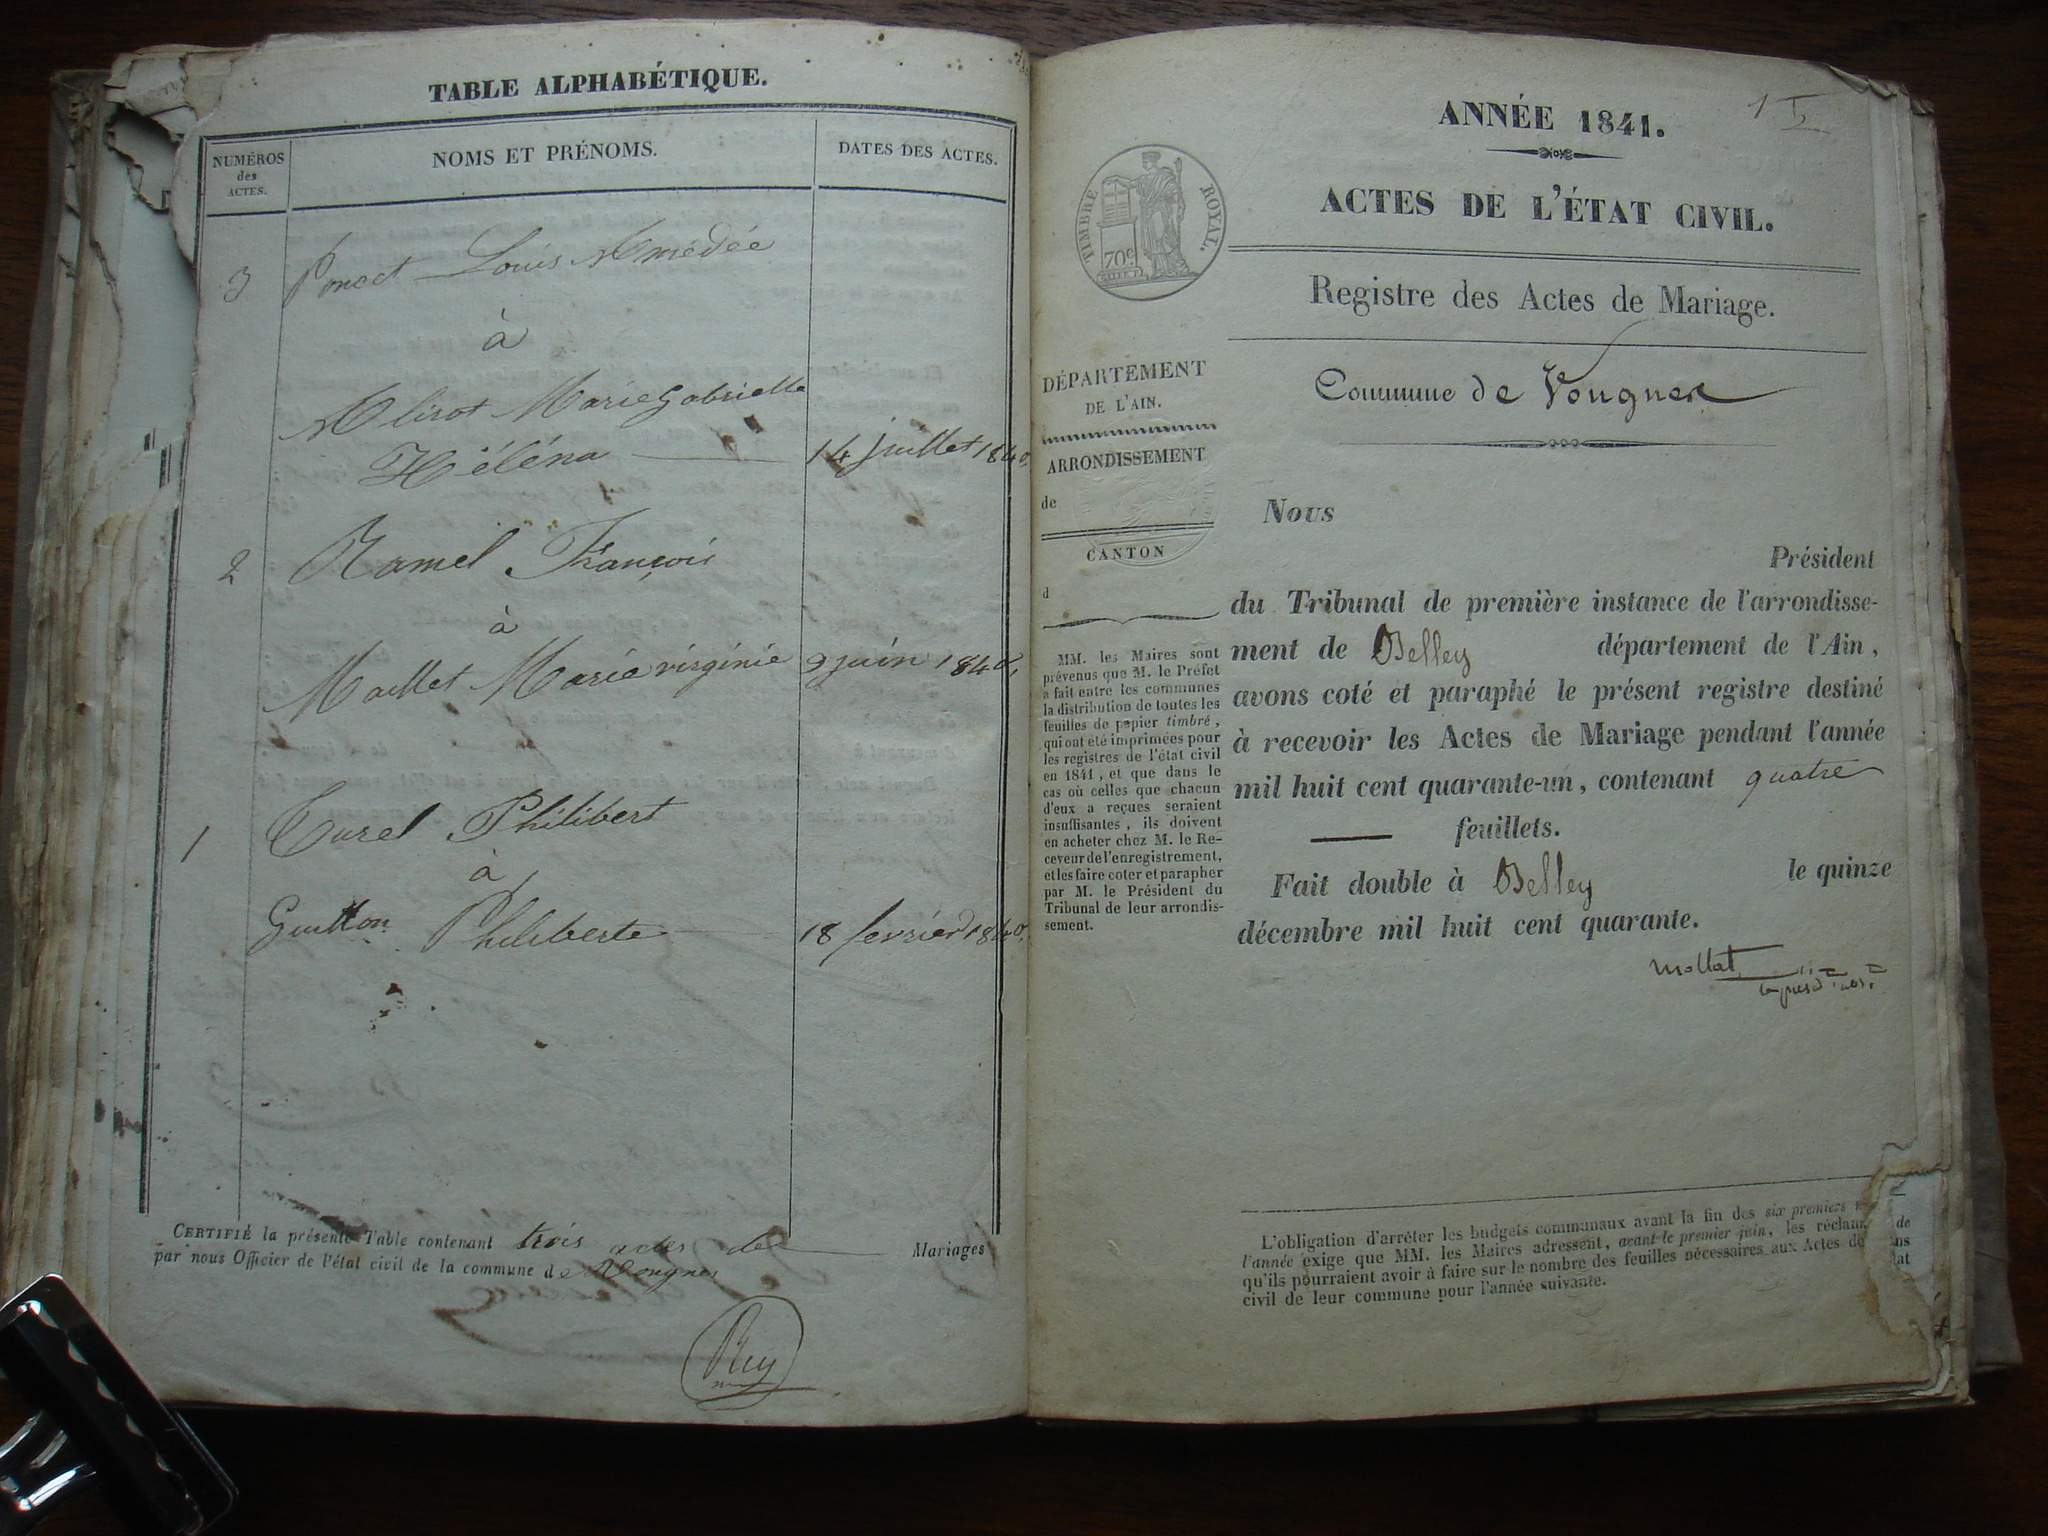 TABLE ALPHABÉTIQUE.
NUMÉROS
des
ACTES.
NOMS ET PRÉNOMS.
DATES DES ACTES.
3 Poncet Louis Amédée
à
Marie Gabrielle
Héléna 14 juillet 1840
2 Ramel François
à
Maillet Marie virginie 9 juin 1840
1 Turel Philibert
à
Guitton Philiberte 18 fevrier 1840
CERTIFIÉ la présente Table contenant trois actes de Mariages
par nous Officier de l'état civil de la commune de Vongnes
Rey
1
ANNÉE 1841.
ACTES DE L'ÉTAT CIVIL.
TIMBRE ROYAL.
70c
Registre des Actes de Mariage.
Commune de Vongnes
DÉPARTEMENT
DE L'AIN.
ARRONDISSEMENT
de
CANTON
d
MM. les Maires sont
prévenus que M. le Préfet
a fait entre les communes
la distribution de toutes les
feuilles de papier timbré,
qui ont été imprimées pour
les registres de l'état civil
en 1841, et que dans le
cas où celles que chacun
d'eux a reçues seraient
insuffisantes, ils doivent
en acheter chez M. le Re-
ceveur de l'enregistrement,
et les faire coter et parapher
par M. le Président du
Tribunal de leur arrondis-
sement.
Nous
Président
du Tribunal de première instance de l'arrondisse-
ment de Belley département de l'Ain,
avons coté et paraphé le présent registre destiné
à recevoir les Actes de Mariage pendant l'année
mil huit cent quarante-un, contenant quatre
feuillets.
Fait double à Belley le quinze
décembre mil huit cent quarante.
Mollat
L'obligation d'arrêter les budgets communaux avant la fin des six premiers
l'année exige que MM. les Maires adressent, avant le premier juin, les
qu'ils pourraient avoir à faire sur le nombre des feuilles nécessaires aux Actes de
civil de leur commune pour l'année suivante.